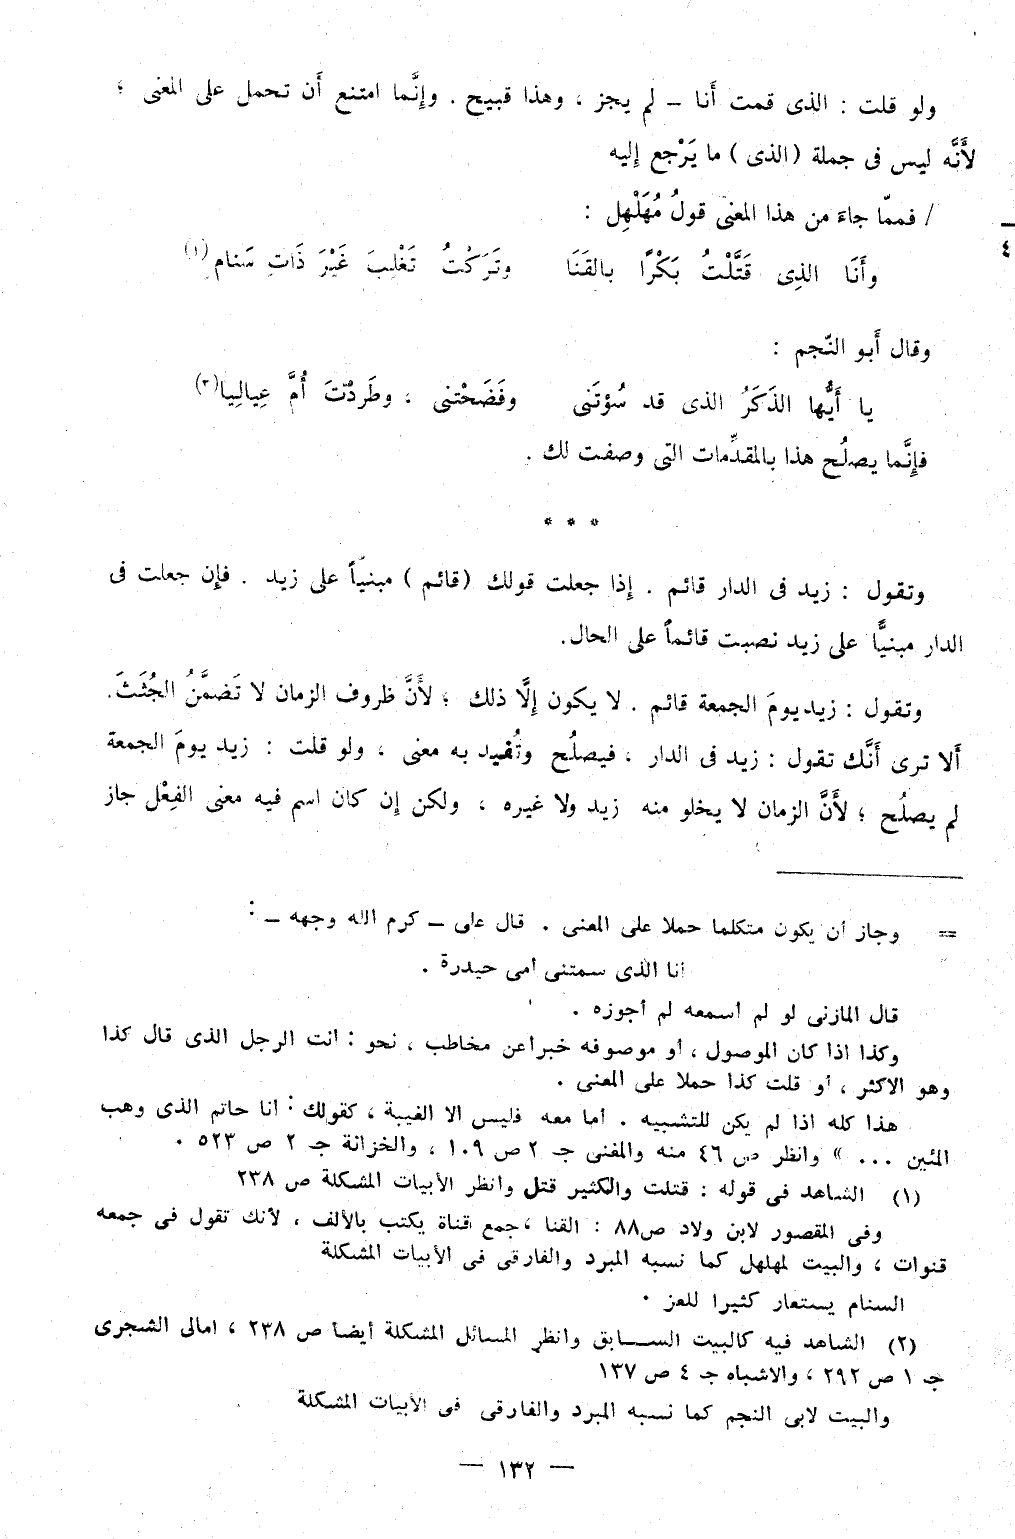 ولو قلت : الذى قمت أَنا – لم يجز ، وهذا قبيح . وإِنَّما امتنع أَن تحمل على المعنى ؛
لأَنَّه ليس فى جملة (الذى) ما يَرْجع إِليه
/ فممّا جاءَ من هذا المعنى قولُ مُهَلْهِل :
٤
وأَنَا الذِى قَتَّلْتُ بَكْرًا بالقَنَا وتَرَكْتُ تَغْلِبَ غَيْرَ ذَاتِ سَنام(١)
وقال أَبو النّجم :
يا أَيُّها الذَكَرُ الذى قد سُؤتَنى وفَضَحْتنى ، وطَردْتَ أُمَّ عِيالِيا(٢)
فإِنَّما يصلُح هذا بالمقدِّمات التى وصفت لك .
* * *
وتقول : زيد فى الدار قائم . إِذا جعلت قولك (قائم) مبنيّاً على زيد . فإِن جعلت فى
الدار مبنيًّا على زيد نصبت قائماً على الحال.
وتقول : زيد يومَ الجمعة قائم . لا يكون إِلَّا ذلك ؛ لأَنَّ ظروف الزمان لا تَضمَّنُ الجُثَثَ.
أَلا ترى أَنَّك تقول : زيد فى الدار ، فيصلُح وتُفيد به معنى ، ولو قلت : زيد يومَ الجمعة
لم يصلُح ؛ لأَنَّ الزمان لا يخلو منه زيد ولا غيره ، ولكن إِن كان اسم فيه معنى الفِعْل جاز
= وجاز أن يكون متكلما حملا على المعنى . قال على – كرم الله وجهه – :
أنا الذى سمتنى أمى حيدرة .
قال المازنى لو لم أسمعه لم أجوزه .
وكذا اذا كان الموصول ، أو موصوفه خبرا عن مخاطب ، نحو : انت الرجل الذى قال كذا
وهو الاكثر ، أو قلت كذا حملا على المعنى .
هذا كله اذا لم يكن للتشبيه . أما معه فليس الا الغيبة ، كقولك : أنا حاتم الذى وهب
المئين ... » وانظر ص ٤٦ منه والمغنى جـ ٢ ص ١٠٩ ، والخزانة جـ ٢ ص ٥٢٣ .
(١) الشاهد فى قوله : قتلت والكثير قتل وانظر الأبيات المشكلة ص ٢٣٨
وفى المقصور لابن ولاد ص٨٨ : القنا ، جمع قناة يكتب بالألف ، لأنك تقول فى جمعه
قنوات ، والبيت لمهلهل كما نسبه المبرد والفارقى فى الأبيات المشكلة
السنام يستعار كثيرا للعز .
(٢) الشاهد فيه كالبيت الســابق وانظر المسائل المشكلة أيضا ص ٢٣٨ ، امالى الشجرى
جـ ١ ص ٢٩٢ ، والاشباه جـ ٤ ص ١٣٧
والبيت لابى النجم كما نسبه المبرد والفارقى فى الأبيات المشكلة
— ١٣٢ —